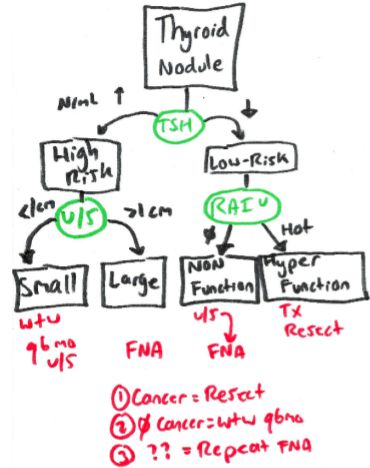 Thyroid
Nodule
N/mL ↑
↓
TSH
High
Risk
Low-Risk
<1cm
U/S
>1cm
RAIU
Ø
Hot
Small
Large
NON
Function
Hyper
Function
W+W
q6mo
U/S
FNA
U/S
FNA
Tx
Resect
① Cancer = Resect
② Ø Cancer = W+W q6mo
③ ?? = Repeat FNA